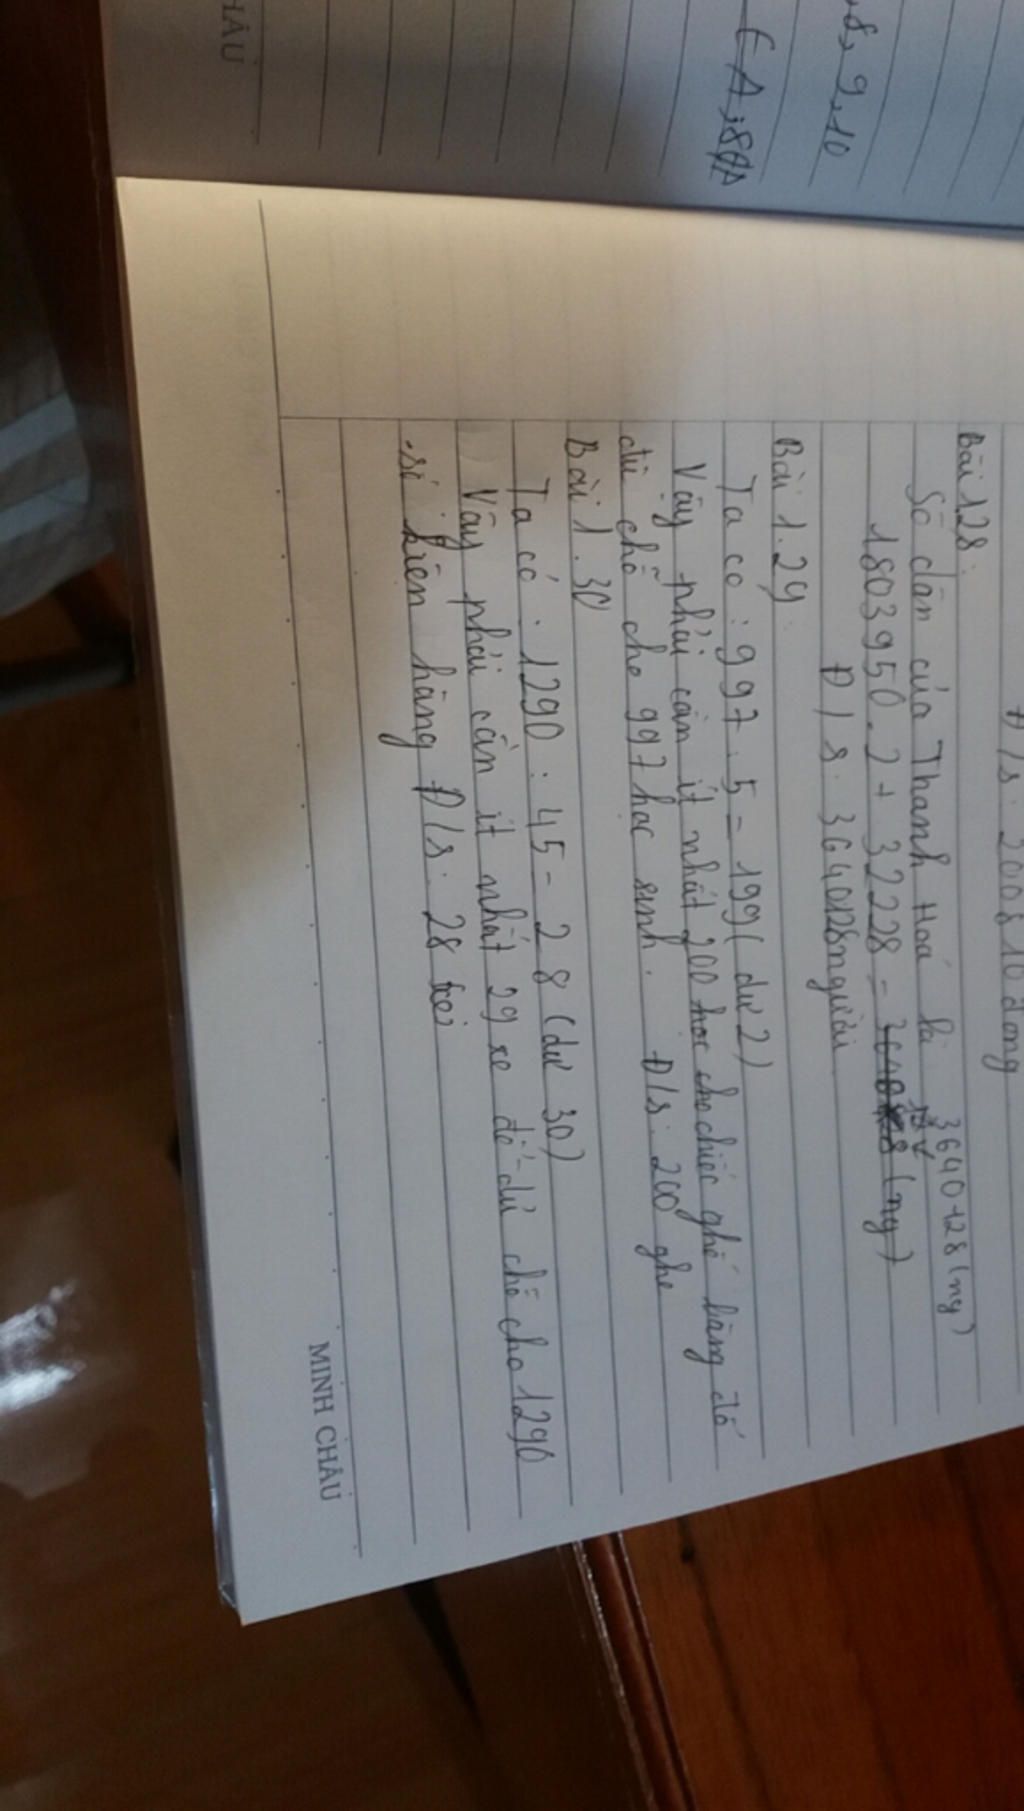 8, 9, 10
HÂU
Đ/s: 200810 đồng
Bài 1.28:
Số dân của Thanh Hoá là
3640128 (ng)
1803950.2 + 32228 = (ng)
Đ/s: 3640128 người
Bài 1.29
Ta co : 997 : 5 = 199 (dư 2)
Vậy phải cần ít nhất 200 chiếc ghế băng để
đủ chỗ cho 997 học sinh. Đ/s: 200 ghe
Bài 1.30
Ta có : 1290 : 45 = 28 (dư 30)
Vậy phải cần ít nhất 29 xe để đủ chỗ cho 1290
số kiện hàng Đ/s: 28
MINH CHÂU